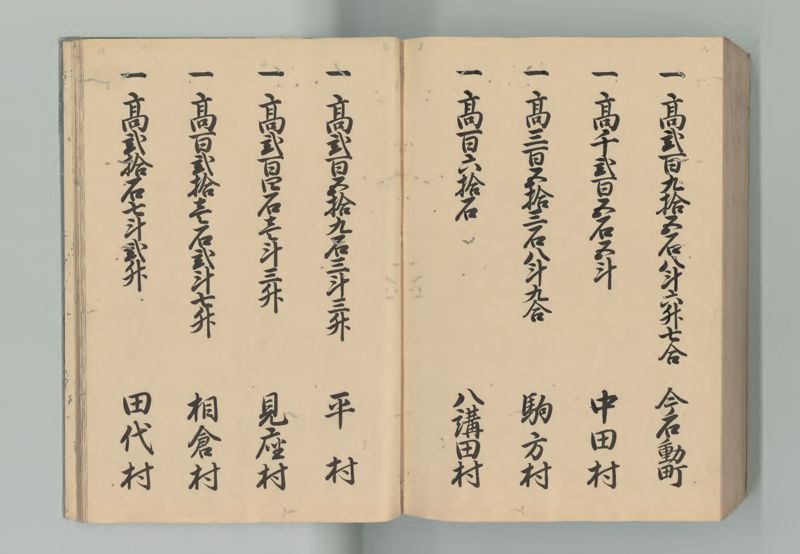 一高弐百九拾五石八斗六升七合 今石動町
一高千弐百五石五斗 中田村
一高三百五拾三石八斗九合 駒方村
一高百六拾石 八講田村
一高弐百五拾九石三斗三升 平村
一高弐百四石壱斗三升 見座村
一高百弐拾壱石弐斗七升 相倉村
一高弐拾石七斗弐升 田代村